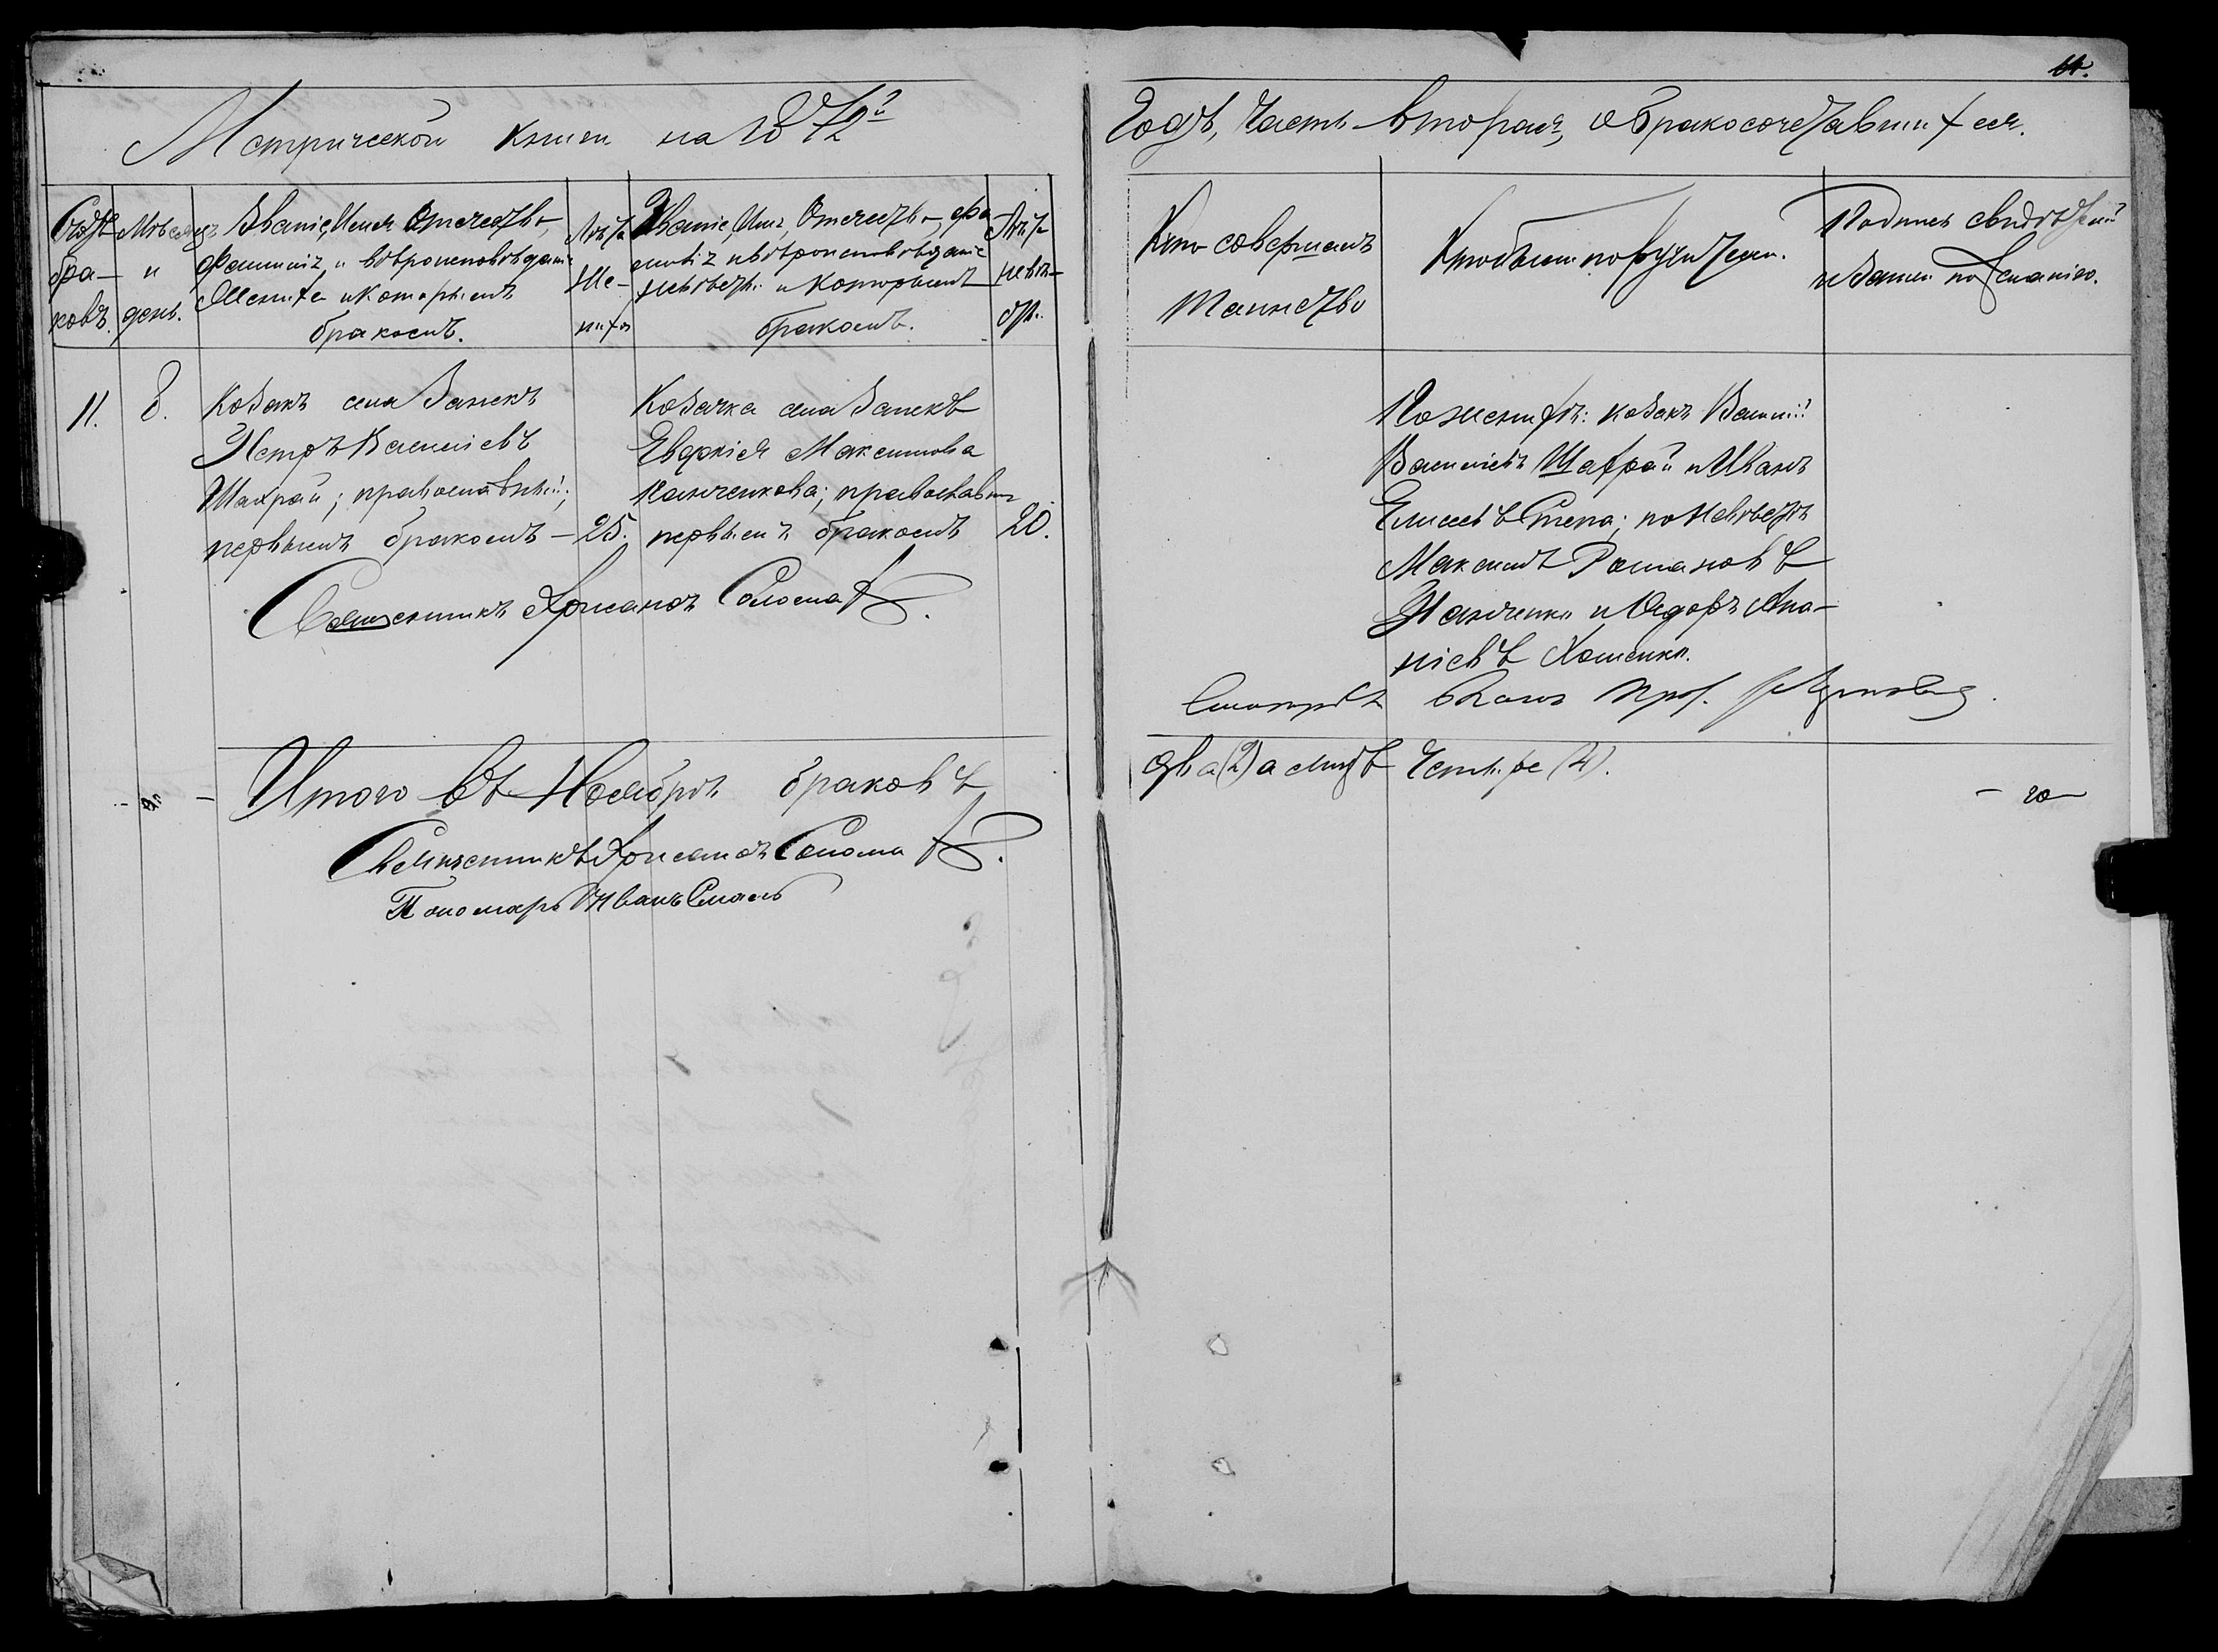 11.
Метрической книги на 1872й
Годъ, Часть вторая, о бракосочетавшихся.
Счетъ бра-
ковъ.
Мѣсяцъ
и
день.
Званіе, Имя, Отечество,
фамилія и вѣроисповѣданіе
Жениха и которымъ
бракомъ.
Лѣта
Же-
ниха
Званіе, Имя, Отечество, фа-
милія и вѣроисповѣданіе
невѣсты и которымъ
бракомъ.
Лѣта
невѣ-
сты.
Кто совершалъ
таинство
Кто были поручители.
Подпись свидѣтелей
и записи по желанію.
11.
8.
Козакъ села Заноекъ
Петръ Василіевъ
Шахрай; православный;
первымъ бракомъ — 25.
Козачка села Заноекъ
Евдокія Максимова
Панченкова; православн
первымъ бракомъ 20.
Священникъ Хрисанѳъ Солоха
По женихѣ: козакъ Василій
Василіевъ Шахрай и Иванъ
Елисеевъ Степа; по невѣстѣ
Максимъ Романовъ
Панченко и Ѳедоръ Ана-
ніевъ Хоменко.
Смотрѣлъ Благ. Прот.
Итого въ Ноябрѣ браковъ
два (2) а лицъ Четыре (4).
Священникъ Хрисанѳъ Солоха
Пономарь Иванъ